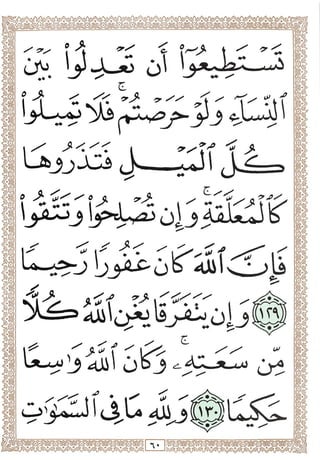 تَسْتَطِيعُوٓا۟ أَن تَعْدِلُوا۟ بَيْنَ
ٱلنِّسَآءِ وَلَوْ حَرَصْتُمْ ۖ فَلَا تَمِيلُوا۟
كُلَّ ٱلْمَيْلِ فَتَذَرُوهَا
كَٱلْمُعَلَّقَةِ ۚ وَإِن تُصْلِحُوا۟ وَتَتَّقُوا۟
فَإِنَّ ٱللَّهَ كَانَ غَفُورًا رَّحِيمًا
١٢٩ وَإِن يَتَفَرَّقَا يُغْنِ ٱللَّهُ كُلًّا
مِّن سَعَتِهِۦ ۚ وَكَانَ ٱللَّهُ وَٰسِعًا
حَكِيمًا ١٣٠ وَلِلَّهِ مَا فِى ٱلسَّمَٰوَٰتِ
٦٠